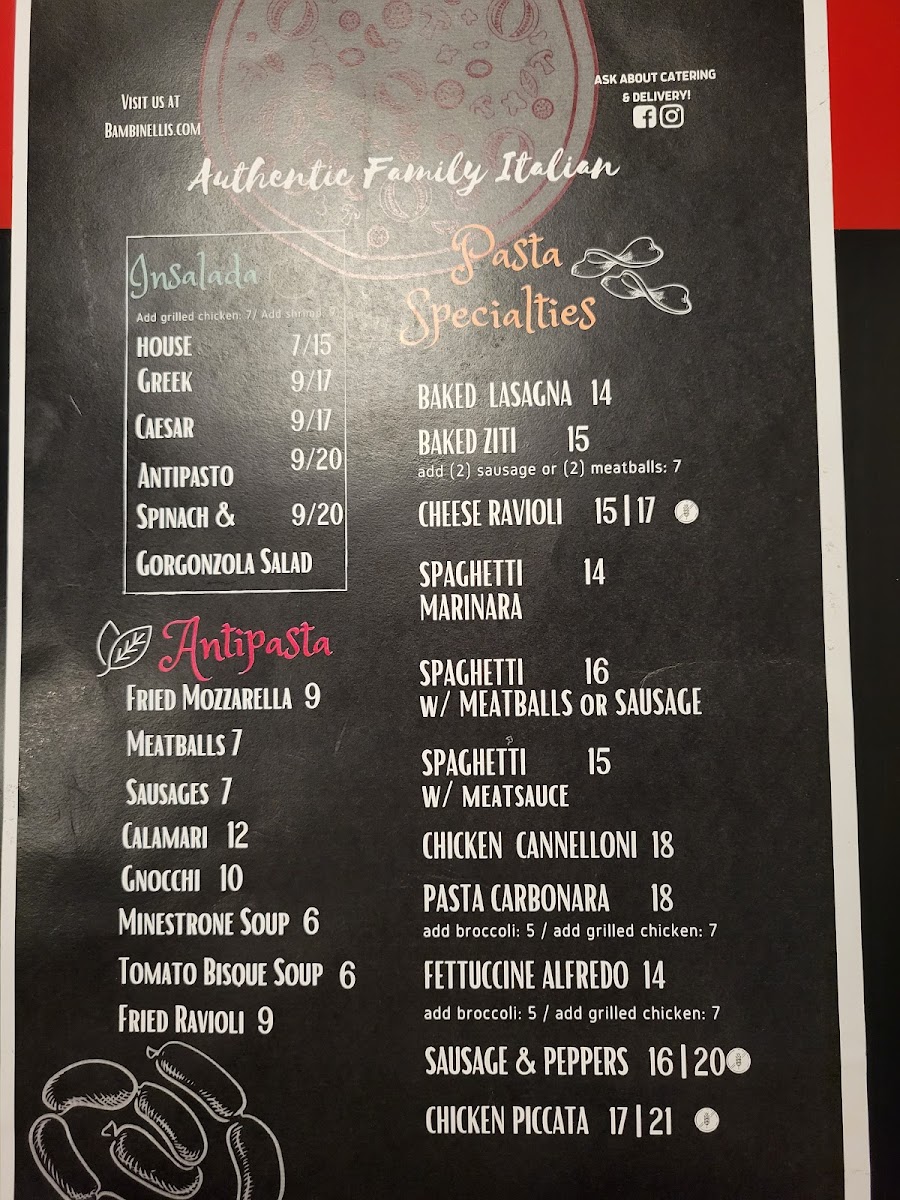 Visit us at
Bambinellis.com
ASK ABOUT CATERING
& DELIVERY!
Authentic Family Italian
Insalada
Add grilled chicken: 7/ Add shrimp:
HOUSE 7/15
GREEK 9/17
CAESAR 9/17
ANTIPASTO 9/20
SPINACH & 9/20
GORGONZOLA SALAD
Antipasta
FRIED MOZZARELLA 9
MEATBALLS 7
SAUSAGES 7
CALAMARI 12
GNOCCHI 10
MINESTRONE SOUP 6
TOMATO BISQUE SOUP 6
FRIED RAVIOLI 9
Pasta
Specialties
BAKED LASAGNA 14
BAKED ZITI 15
add (2) sausage or (2) meatballs: 7
CHEESE RAVIOLI 15|17
SPAGHETTI 14
MARINARA
SPAGHETTI 16
W/ MEATBALLS OR SAUSAGE
SPAGHETTI 15
W/ MEATSAUCE
CHICKEN CANNELLONI 18
PASTA CARBONARA 18
add broccoli: 5 / add grilled chicken: 7
FETTUCCINE ALFREDO 14
add broccoli: 5 / add grilled chicken: 7
SAUSAGE & PEPPERS 16|20
CHICKEN PICCATA 17|21